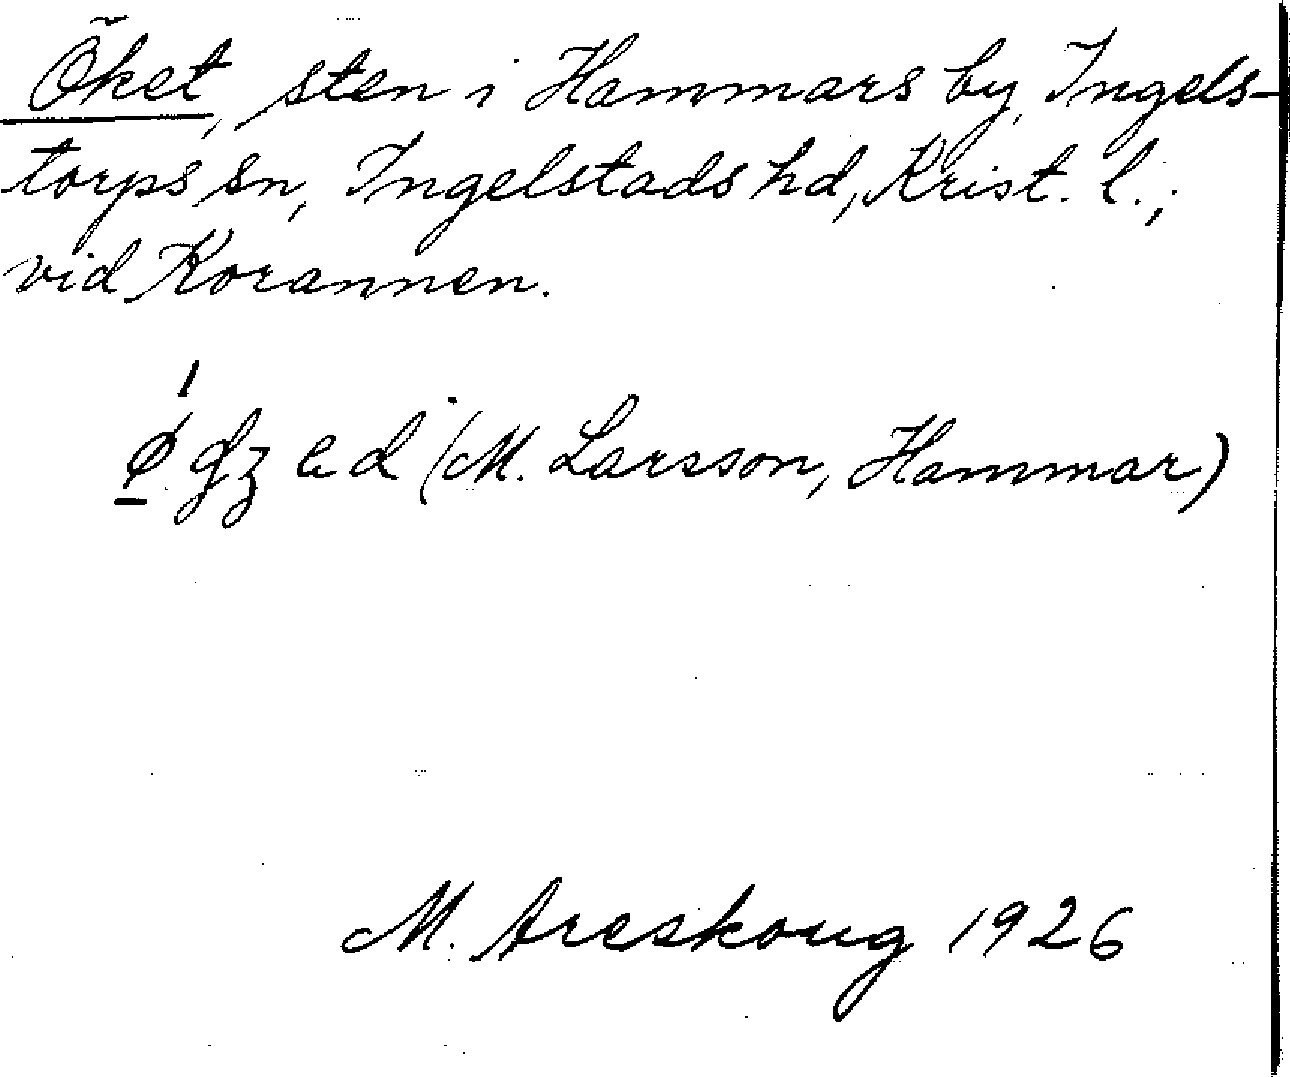 Öket, sten i Hammars by, Ingels-
torps sn, Ingelstads hd, Krist. l.,
vid Korannen.
(M. Larsson, Hammar)
M. Areskoug 1926